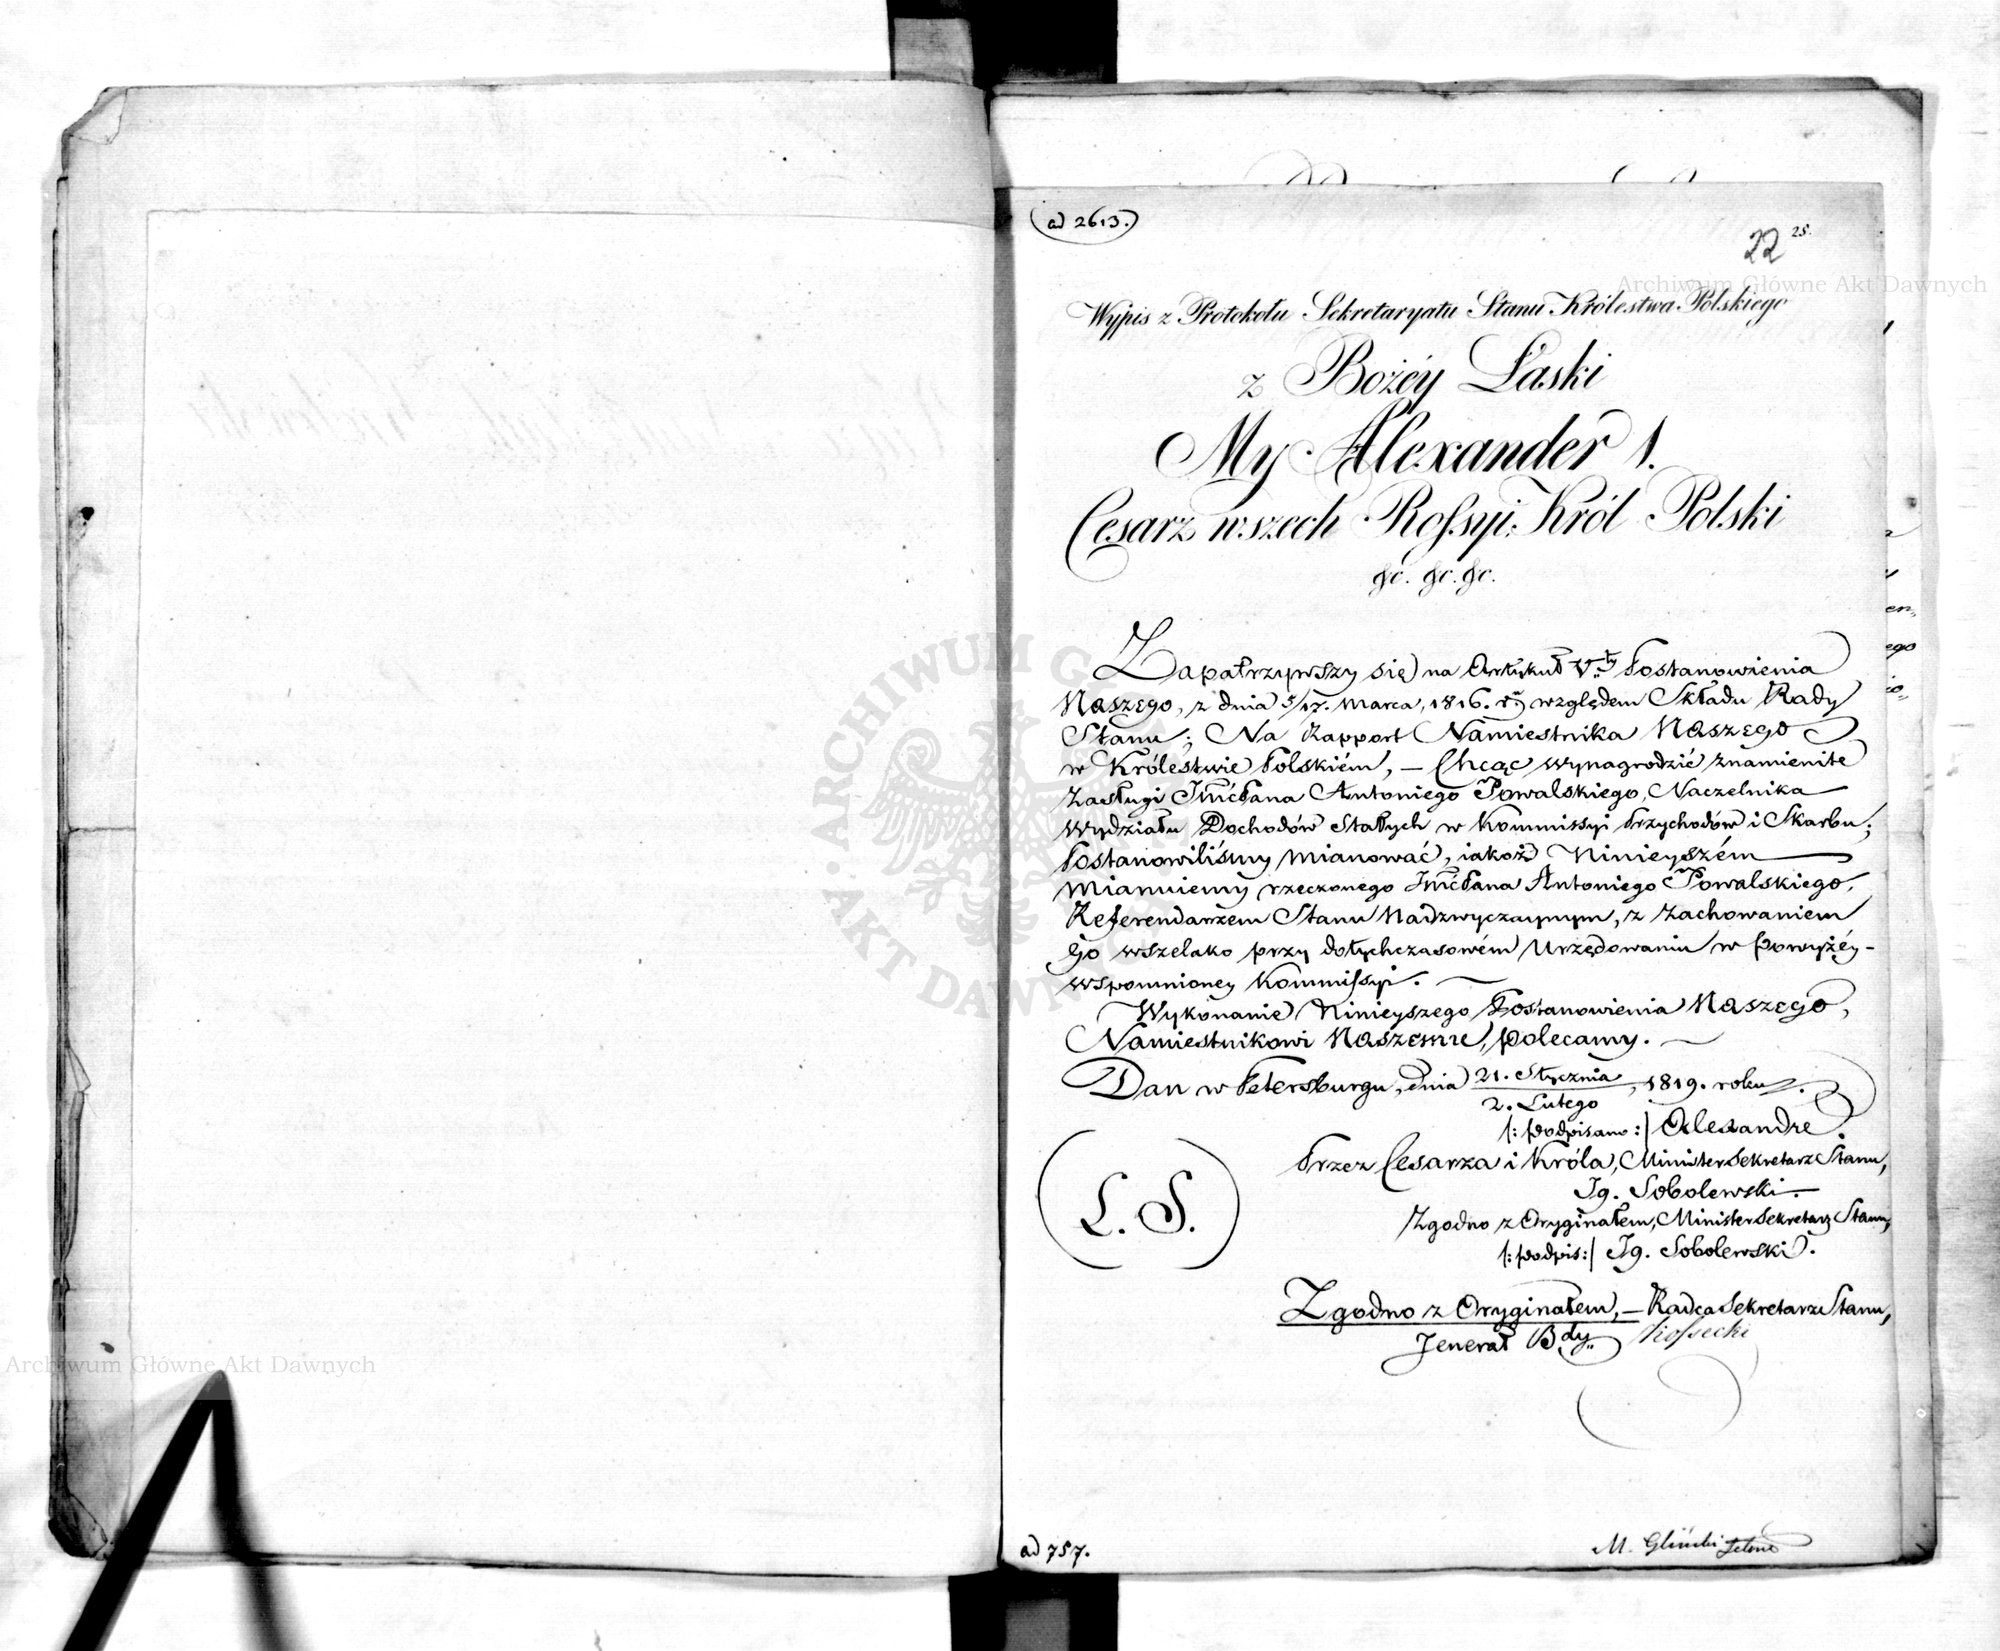 ad 2613.
22 25.
Wypis z Protokołu Sekretaryatu Stanu Królestwa Polskiego
z Bożéy Łaski
My Alexander 1.
Cesarz wszech Rossyi, Król Polski
&c. &c. &c.
Zapatrzywszy się na Artykuł V.ty Postanowienia
Naszego, z dnia 5/17. Marca, 1816. r. względem Składu Rady
Stanu; Na Rapport Namiestnika Naszego
w Królestwie Polskiém, — Chcąc wynagrodzić znamienite
zasługi JmćPana Antoniego Powalskiego, Naczelnika
Wydziału Dochodów Stałych w Kommissyi Przychodów i Skarbu;
Postanowiliśmy mianować, iakoż Ninieyszém
Mianuiemy rzeczonego JmćPana Antoniego Powalskiego,
Referendarzem Stanu Nadzwyczaynym, z zachowaniem
Go wszelako przy dotychczasowém Urzędowaniu w Powyżéy-
wspomnioney Kommissyi.
Wykonanie Ninieyszego Postanowienia Naszego,
Namiestnikowi Naszemu, polecamy.
Dan w Petersburgu, dnia 21. Stycznia / 2. Lutego, 1819. roku.
/: podpisano :/ Alexandre.
Przez Cesarza i Króla, Minister Sekretarz Stanu,
Ig. Sobolewski.
L. S.
Zgodno z Oryginałem, Minister Sekretarz Stanu,
/: podpis :/ Ig. Sobolewski.
Zgodno z Oryginałem, — Radca Sekretarz Stanu,
Jenerał B.dy Kossecki
ad 757.
M. Gliński
Archiwum Główne Akt Dawnych
Archiwum Główne Akt Dawnych